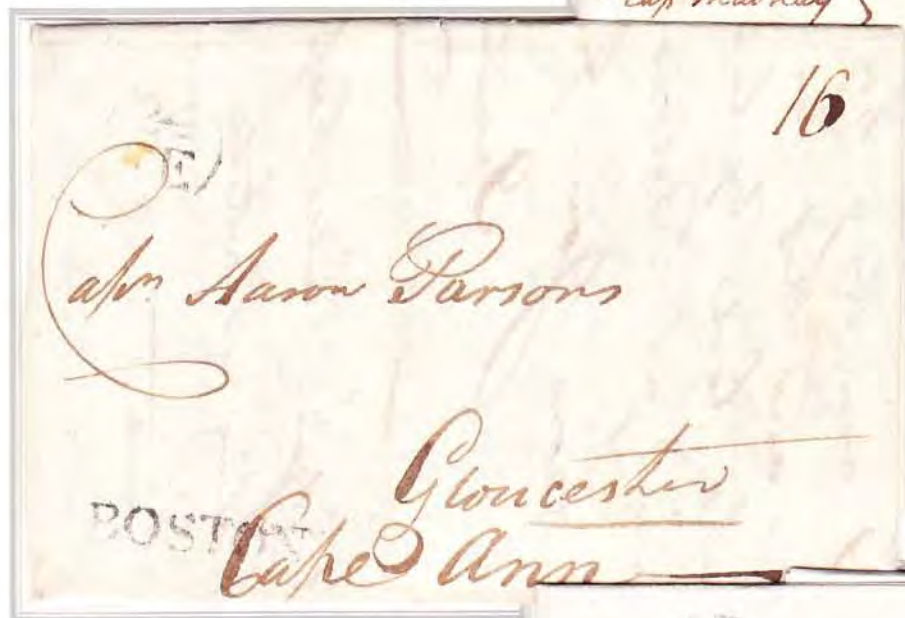 16
E
Capn Aaron Parsons
Gloucester
BOSTON
Cape Ann